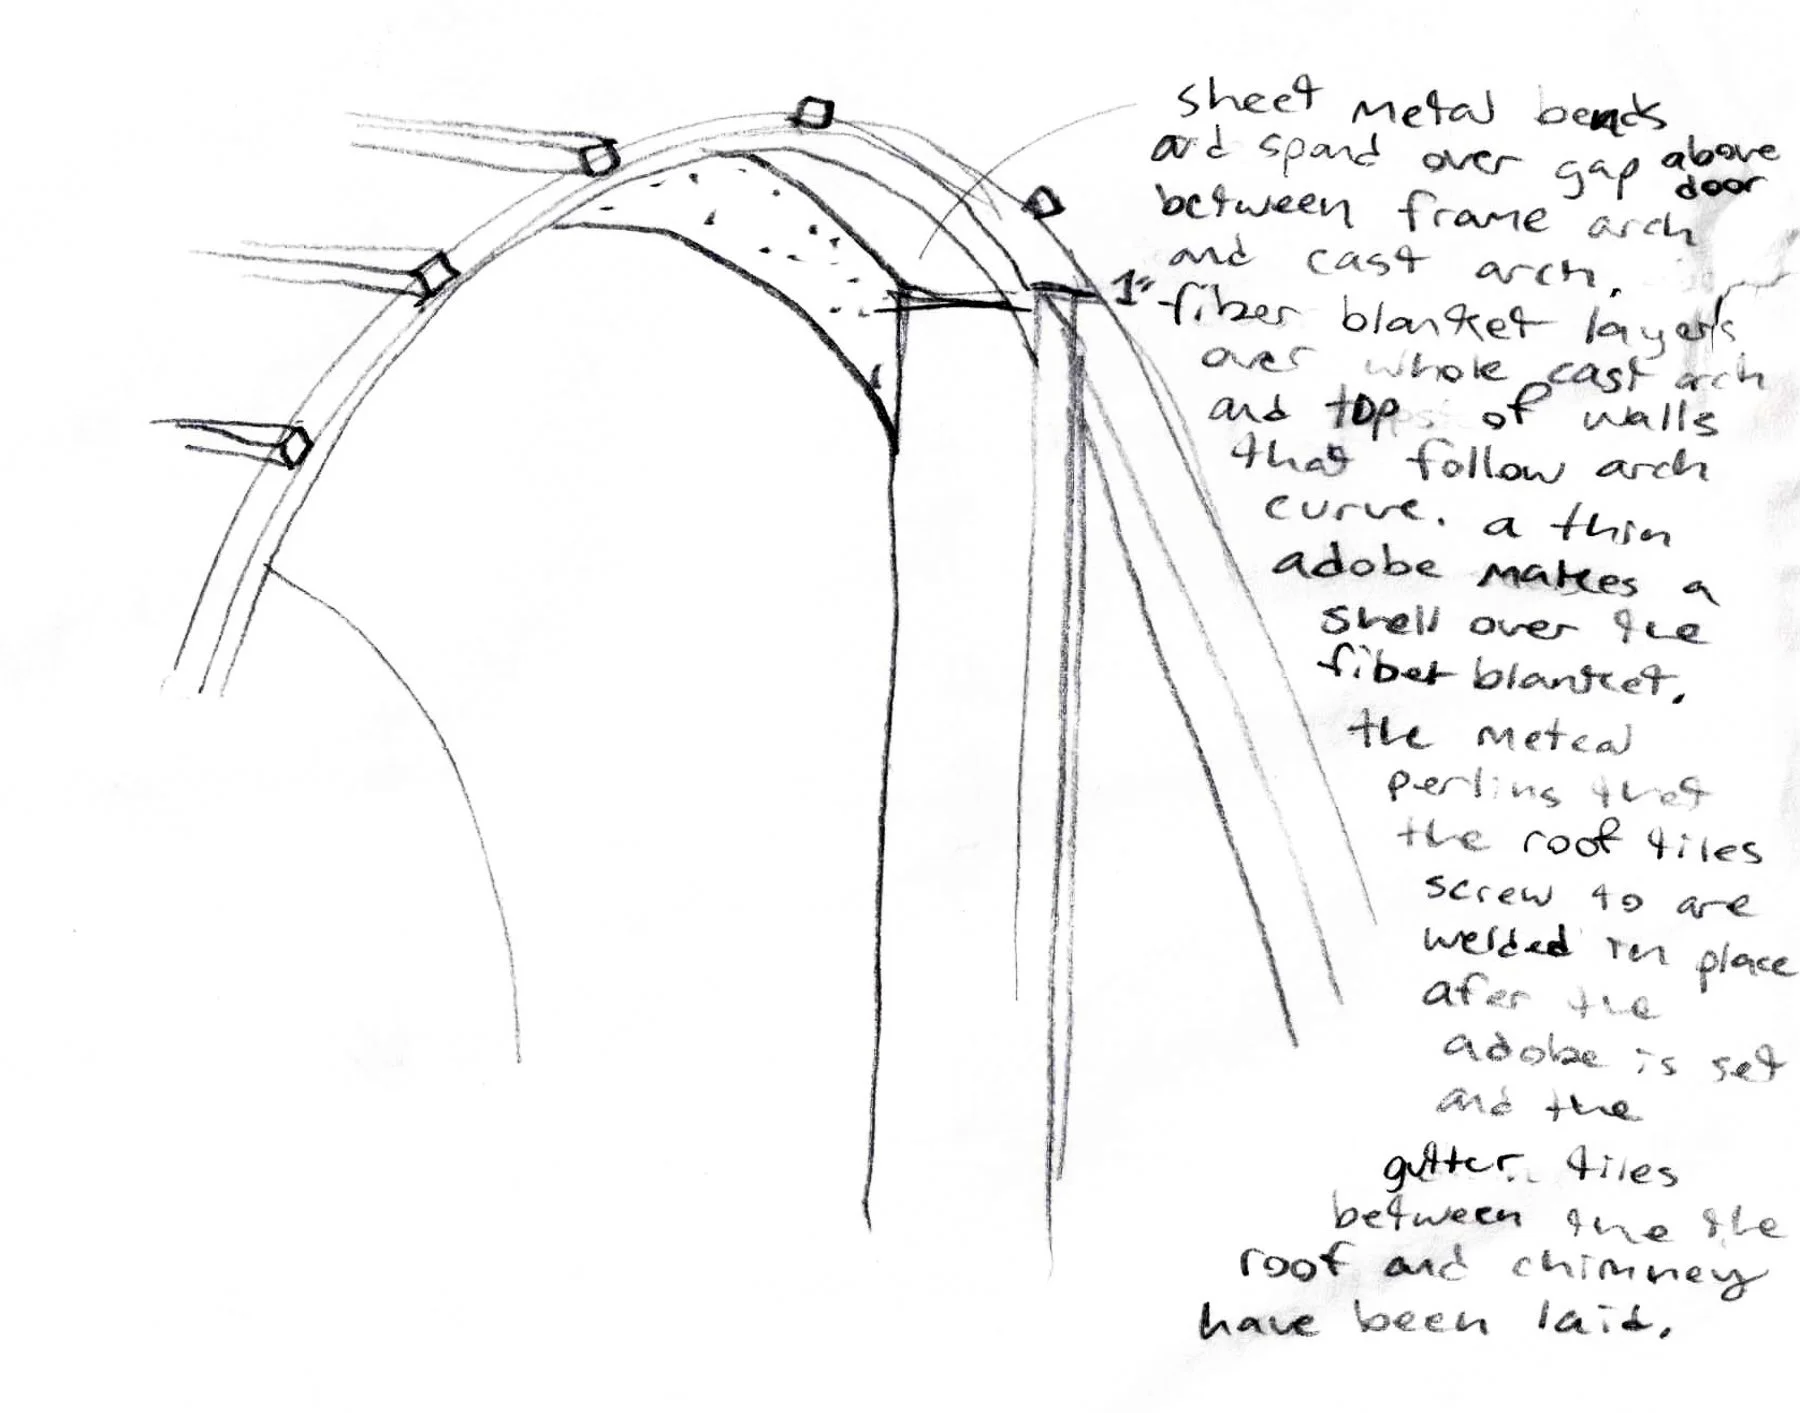 sheet metal bends
and spand over gap above door
between frame arch
and cast arch.
1"
fiber blanket layers
over whole cast arch
and top of walls
that follow arch
curve. a thin
adobe makes a
shell over the
fiber blanket.
the metal
perlins that
the roof tiles
screw to are
welded in place
afer the
adobe is set
and the
gutter tiles
between the the
roof and chimney
have been laid.